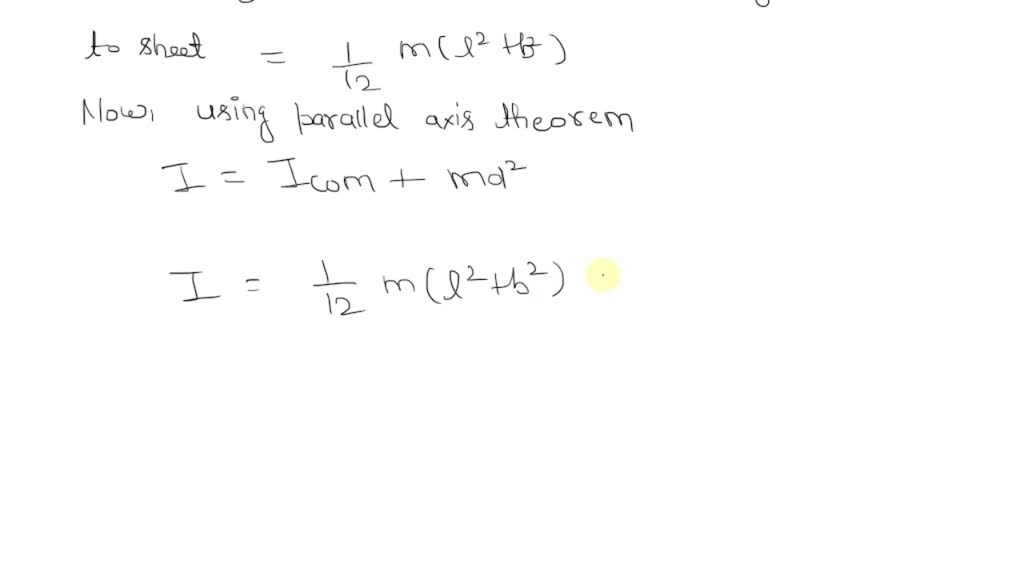 to sheet = 1/12 m(l² + b²)
Now, using parallel axis theorem
I = Icom + md²
I = 1/12 m(l² + b²)